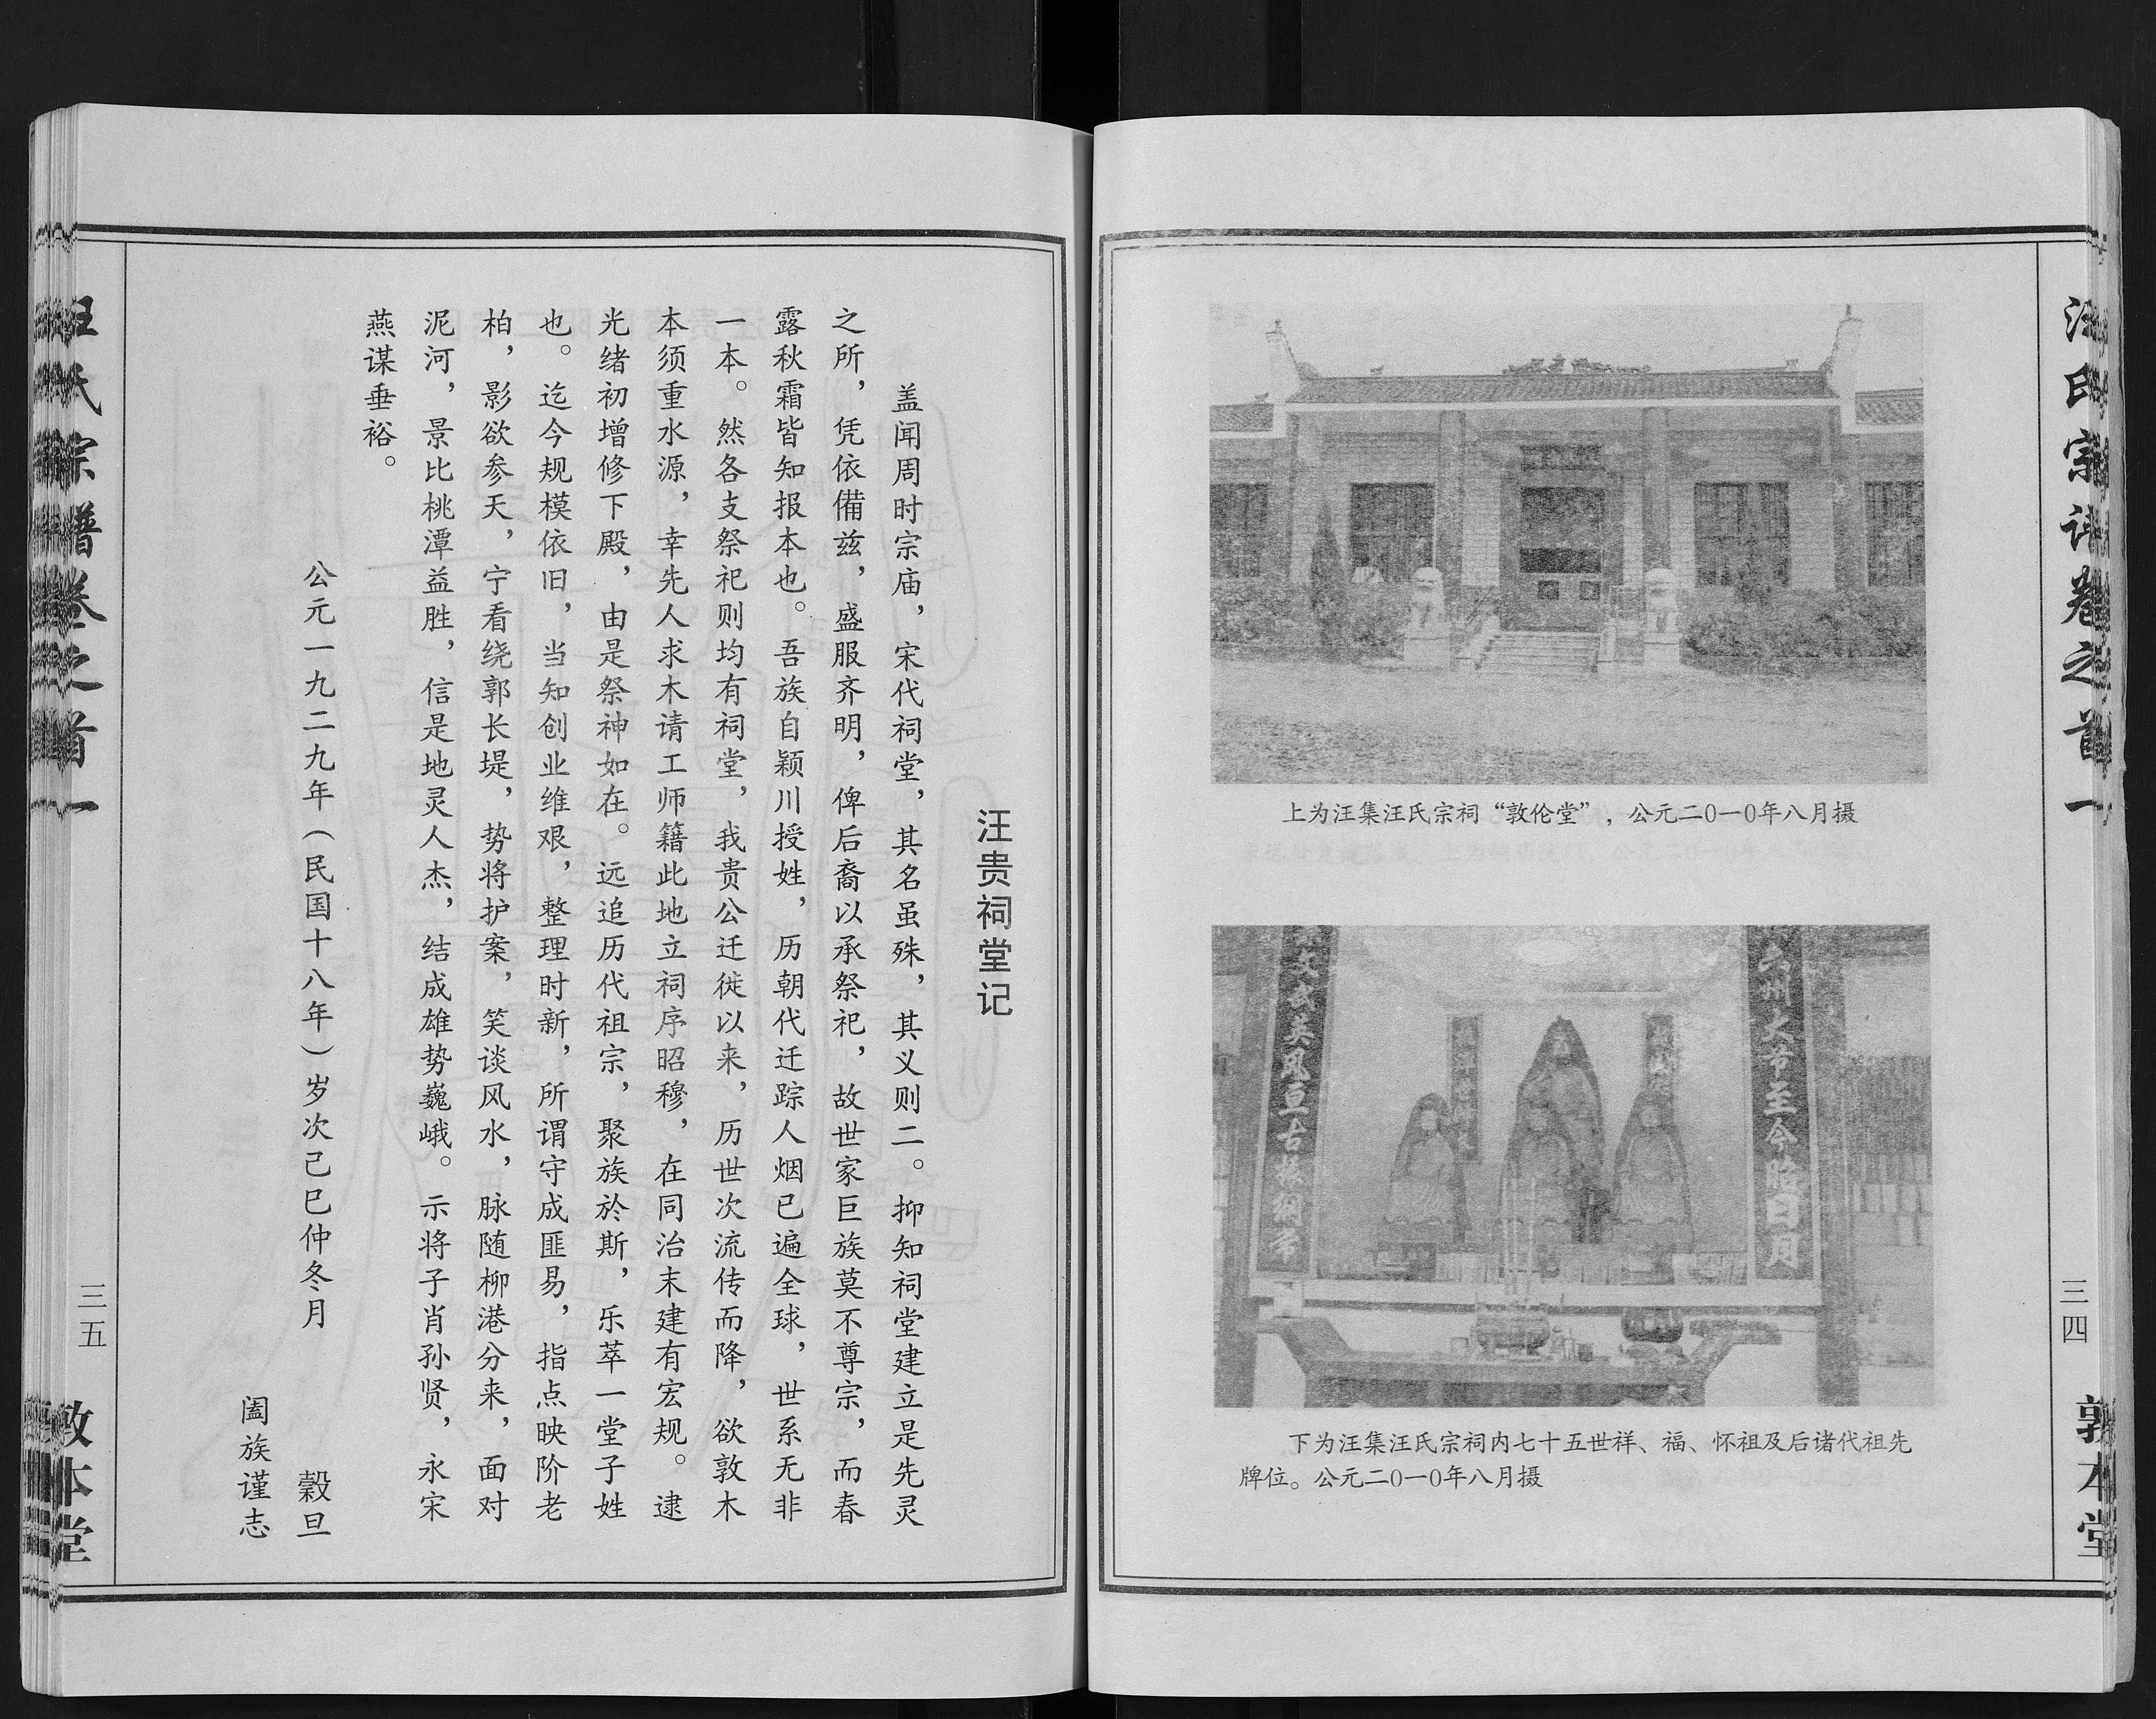 汪氏宗谱卷之首一
上为汪集汪氏宗祠“敦伦堂”，公元二〇一〇年八月摄
六州大帝至今昭日月
文武英风亘古振纲常
下为汪集汪氏宗祠内七十五世祥、福、怀祖及后诸代祖先
牌位。公元二〇一〇年八月摄
三四
敦本堂
汪贵祠堂记
盖闻周时宗庙，宋代祠堂，其名虽殊，其义则二。抑知祠堂建立是先灵
之所，凭依備兹，盛服齐明，俾后裔以承祭祀，故世家巨族莫不尊宗，而春
露秋霜皆知报本也。吾族自颖川授姓，历朝代迁踪人烟已遍全球，世系无非
一本。然各支祭祀则均有祠堂，我贵公迁徙以来，历世次流传而降，欲敦木
本须重水源，幸先人求木请工师籍此地立祠序昭穆，在同治末建有宏规。逮
光绪初增修下殿，由是祭神如在。远追历代祖宗，聚族於斯，乐萃一堂子姓
也。迄今规模依旧，当知创业维艰，整理时新，所谓守成匪易，指点映阶老
柏，影欲参天，宁看绕郭长堤，势将护案，笑谈风水，脉随柳港分来，面对
泥河，景比桃潭益胜，信是地灵人杰，结成雄势巍峨。示将子肖孙贤，永宋
燕谋垂裕。
公元一九二九年（民国十八年）岁次己巳仲冬月
榖旦
阖族谨志
汪氏宗谱卷之首一
三五
敦本堂